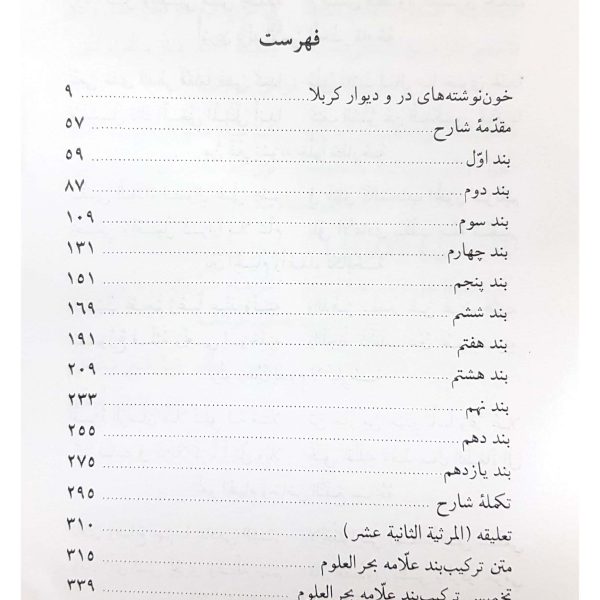 فهرست
خون‌نوشته‌های در و دیوار کربلا ۹
مقدّمهٔ شارح ۵۷
بند اوّل ۵۹
بند دوم ۸۷
بند سوم ۱۰۹
بند چهارم ۱۳۱
بند پنجم ۱۵۱
بند ششم ۱۶۹
بند هفتم ۱۹۱
بند هشتم ۲۰۹
بند نهم ۲۳۳
بند دهم ۲۵۵
بند یازدهم ۲۷۵
تکملهٔ شارح ۲۹۵
تعلیقه (المرثیة الثانیة عشر) ۳۱۰
متن ترکیب‌بند علّامه بحرالعلوم ۳۱۵
تخمیس ترکیب‌بند علّامه بحرالعلوم ۳۳۹